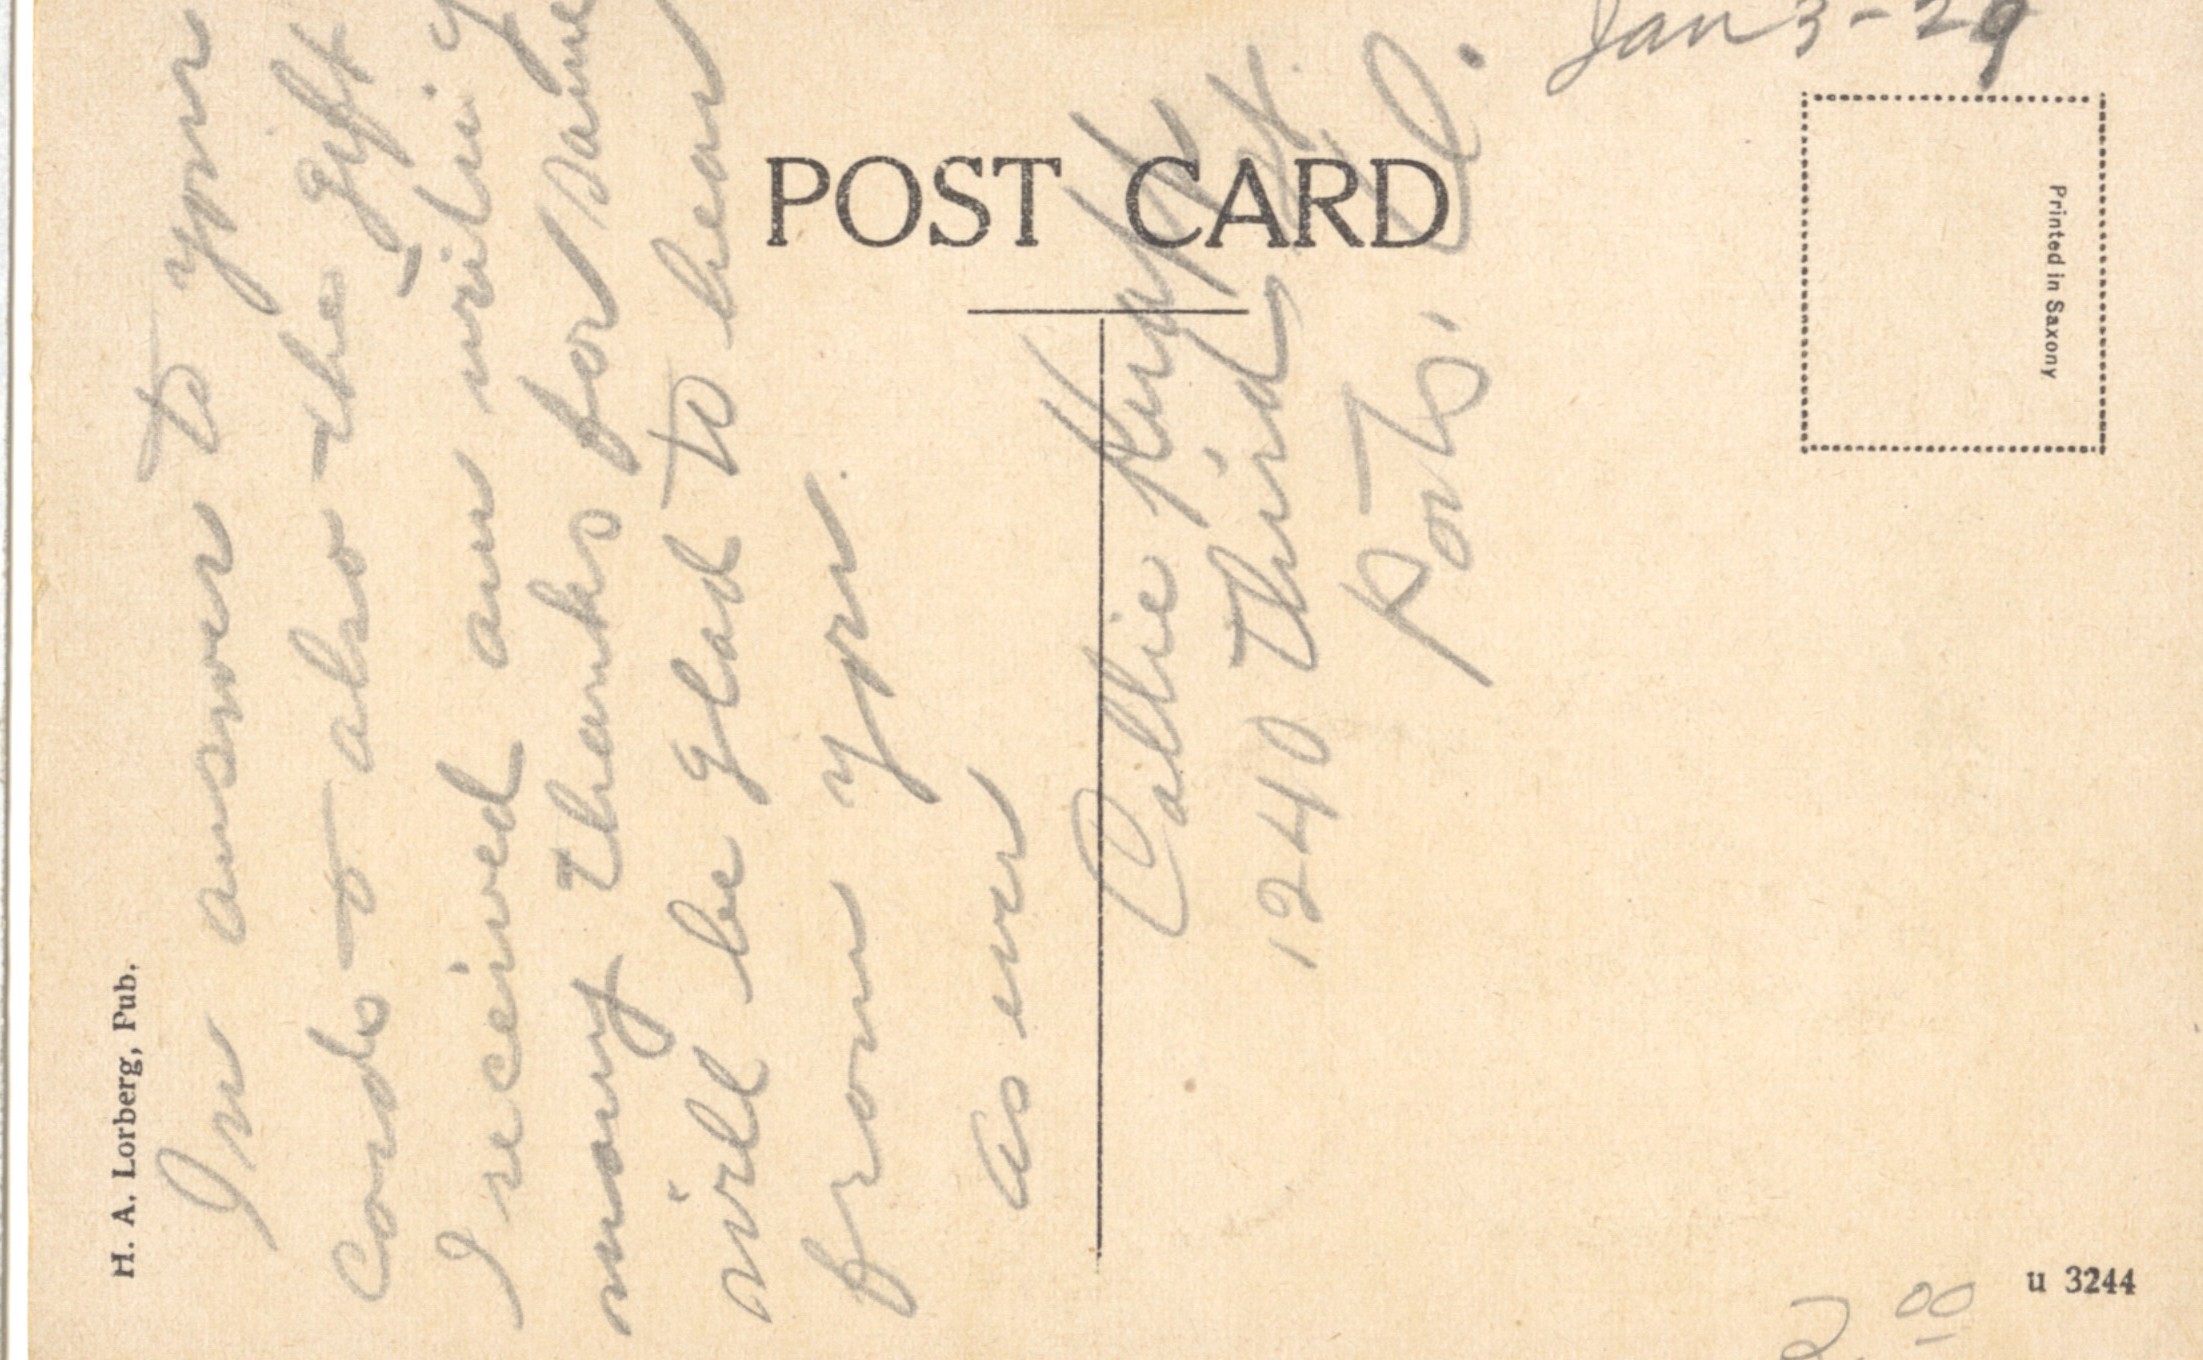 Jan 3-29
In answer to your
cards & also the gift
I received am writing
many thanks for same
will be glad to hear
from you.
as ever
Callie
1240 Third St.
Ports. O.
POST CARD
Printed in Saxony
H. A. Lorberg, Pub.
u 3244
2 00